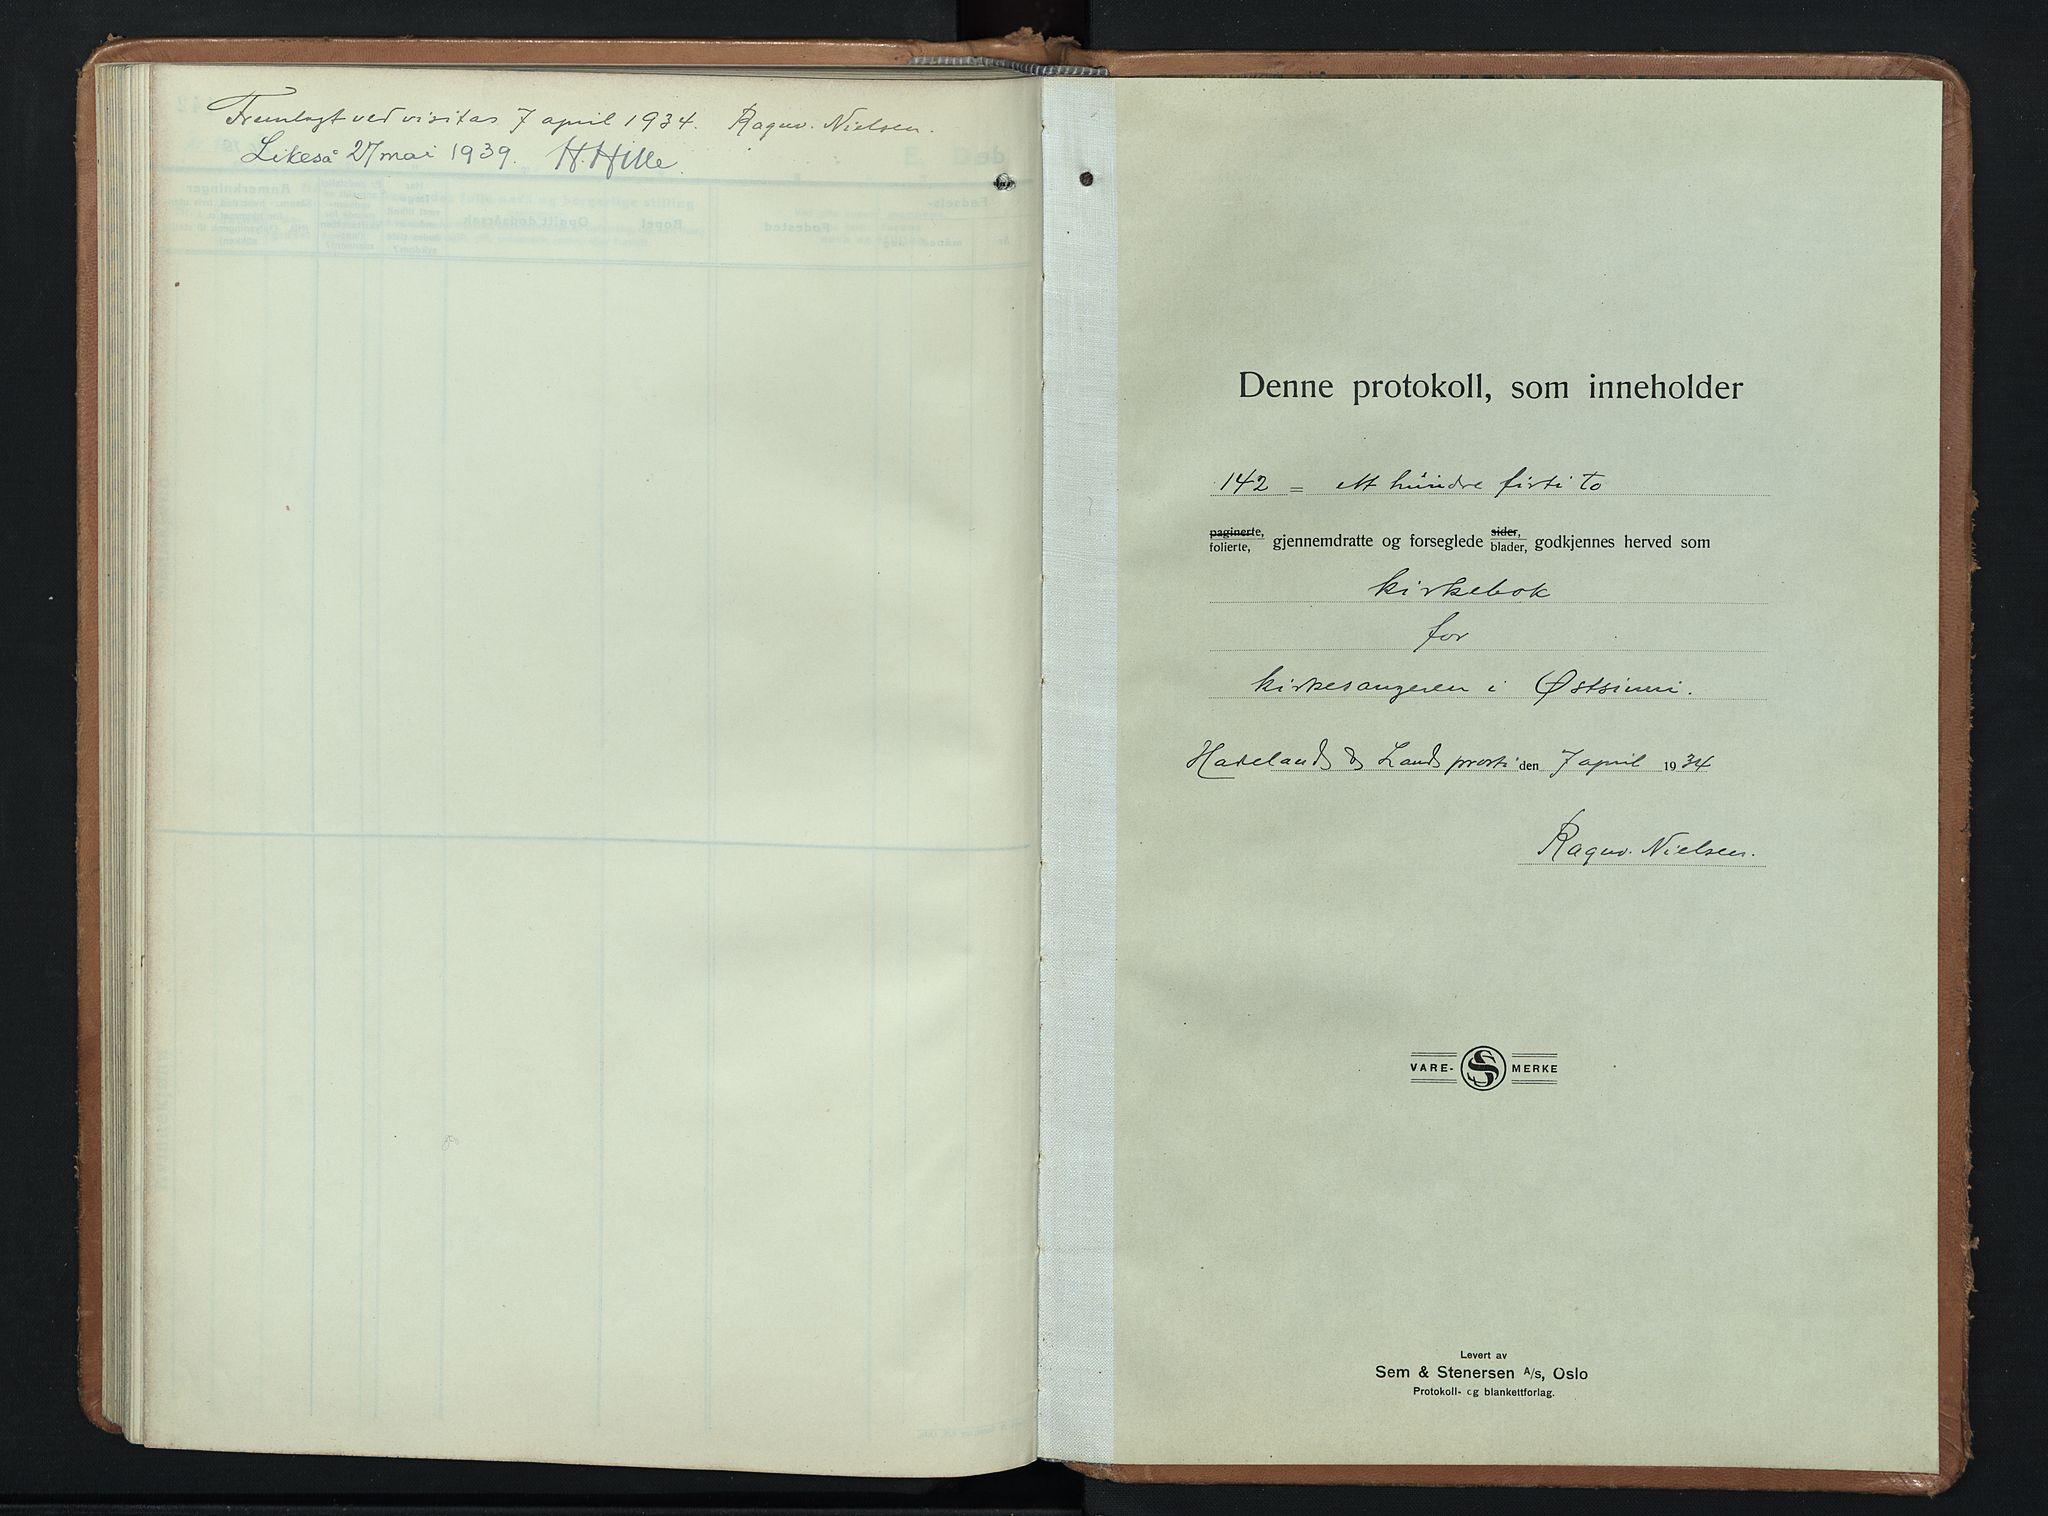 Fremlagt ved visitas 7 april 1934. Ragnv. Nielsen.
Likeså 27 mai 1939. H. Hille.
Denne protokoll, som inneholder
142 = ett hundre firti to
paginerte, folierte, gjennemdratte og forseglede sider, blader, godkjennes herved som
kirkebok
for
kirkesangeren i Østsinni.
Hadelands & Lands prosti den 7 april 1934
Ragnv. Nielsen.
VARE- S MERKE
Levert av
Sem & Stenersen A/s, Oslo
Protokoll- og blankettforlag.